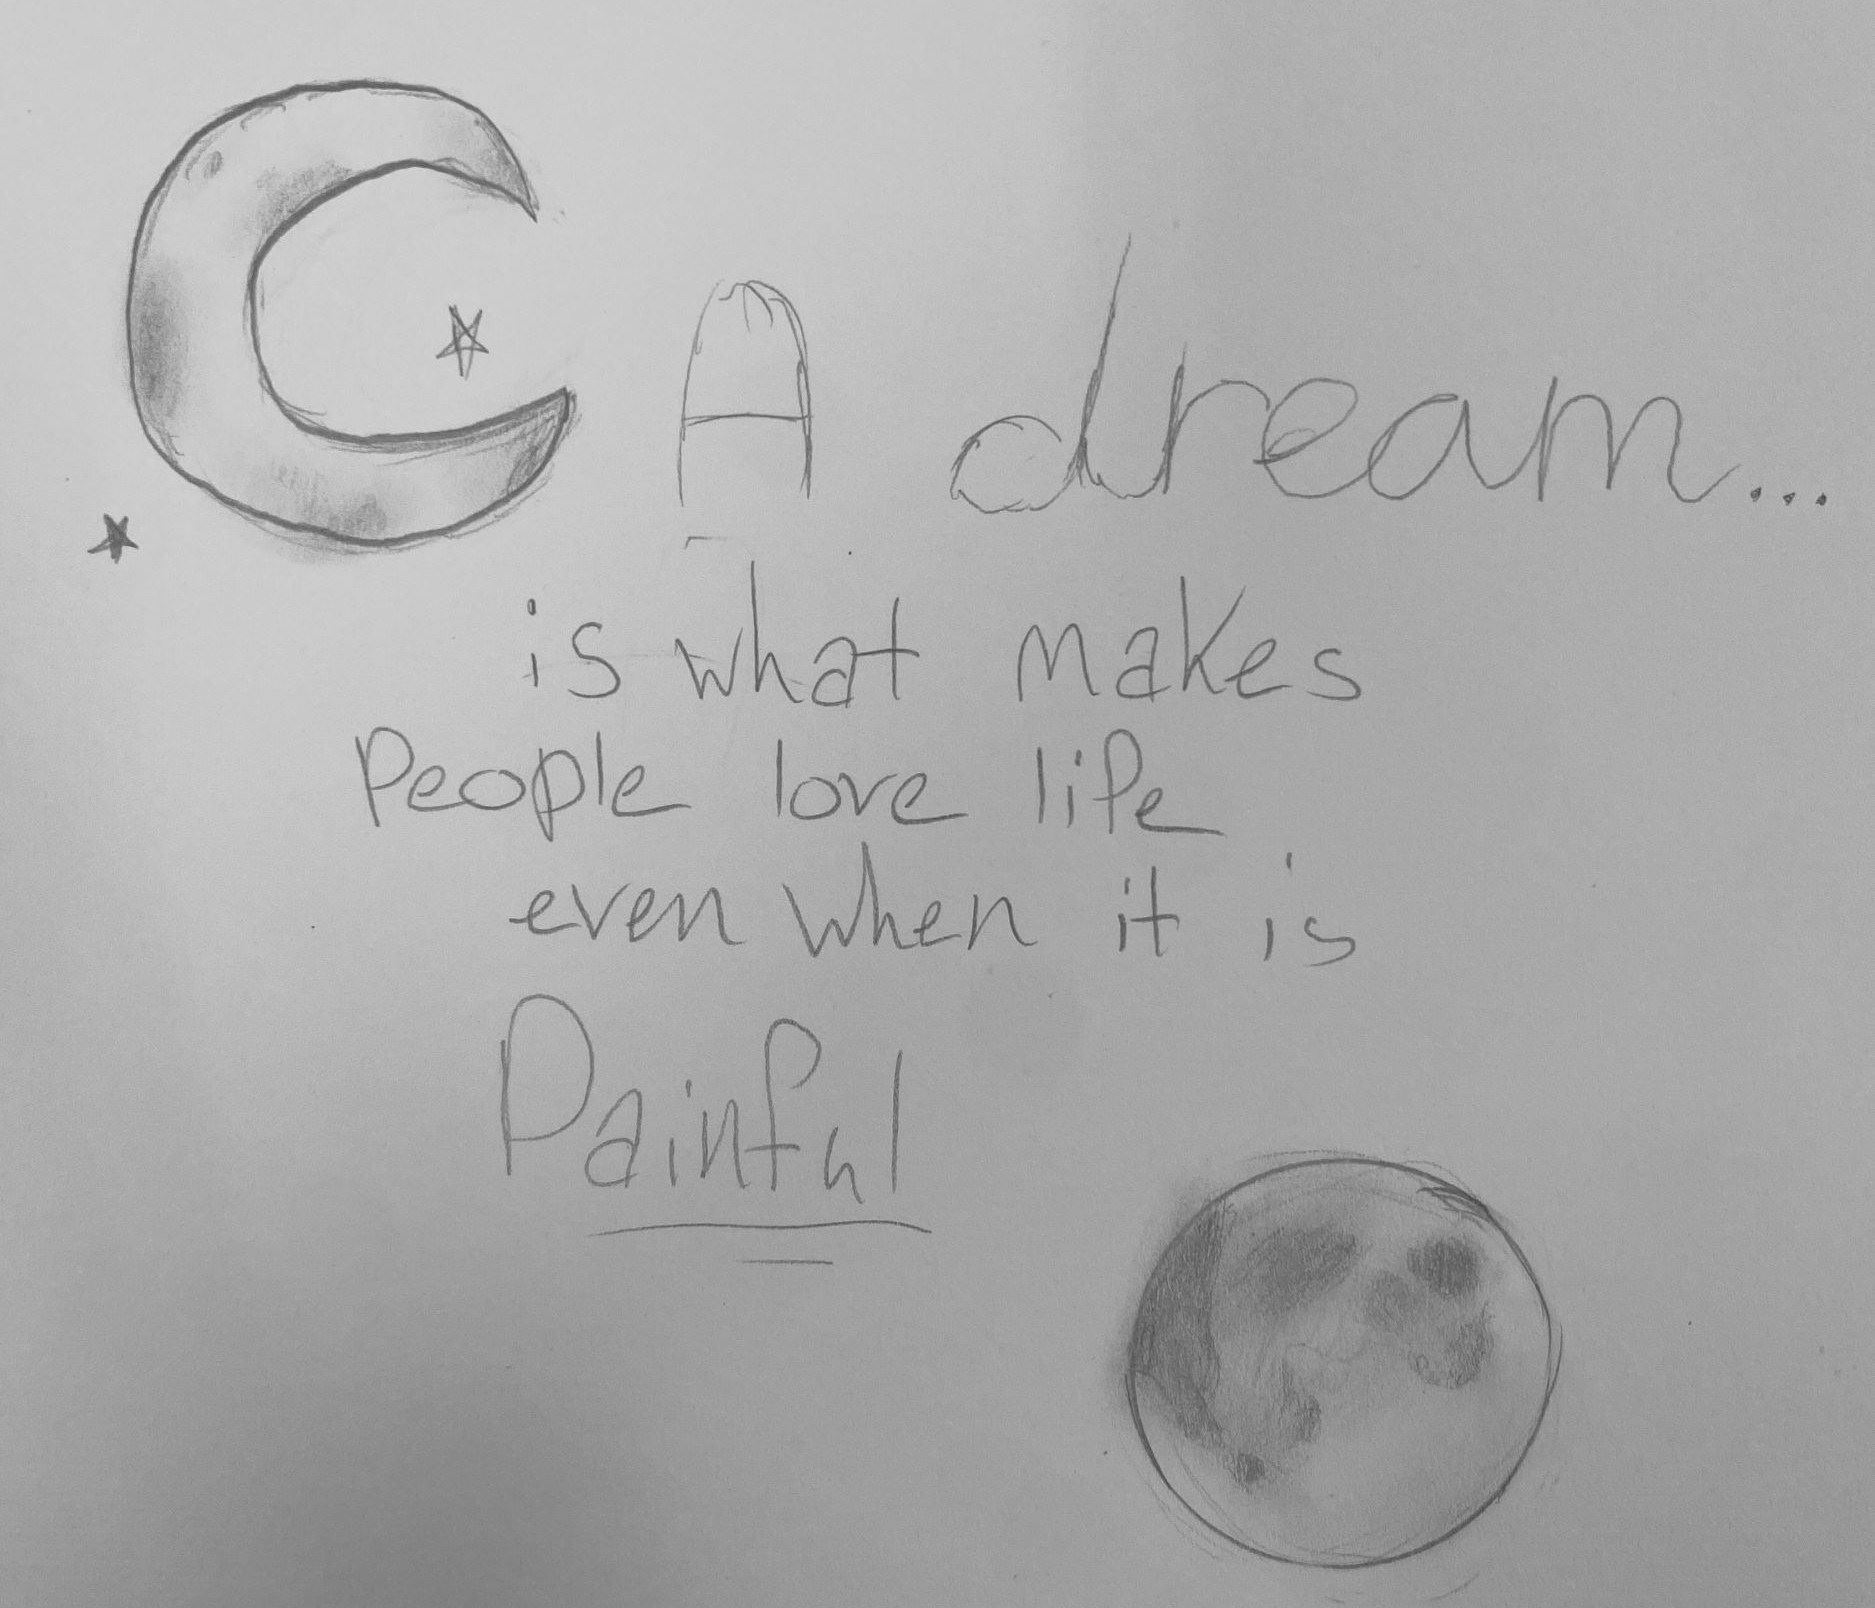 A dream...
is what makes
People love life
even when it is
Painful